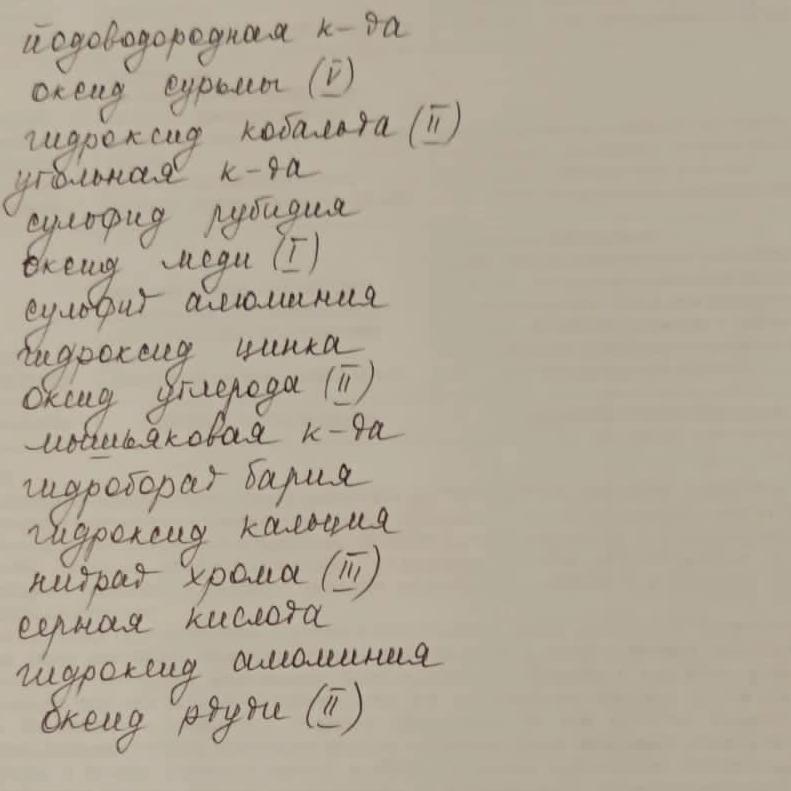 йодоводородная к-та
оксид сурьмы (V)
гидроксид кобальта (II)
угольная к-та
сульфид рубидия
оксид меди (I)
сульфит алюминия
гидроксид цинка
оксид углерода (II)
мышьяковая к-та
гидроборат бария
гидроксид кальция
нитрат хрома (III)
серная кислота
гидроксид алюминия
оксид ртути (II)